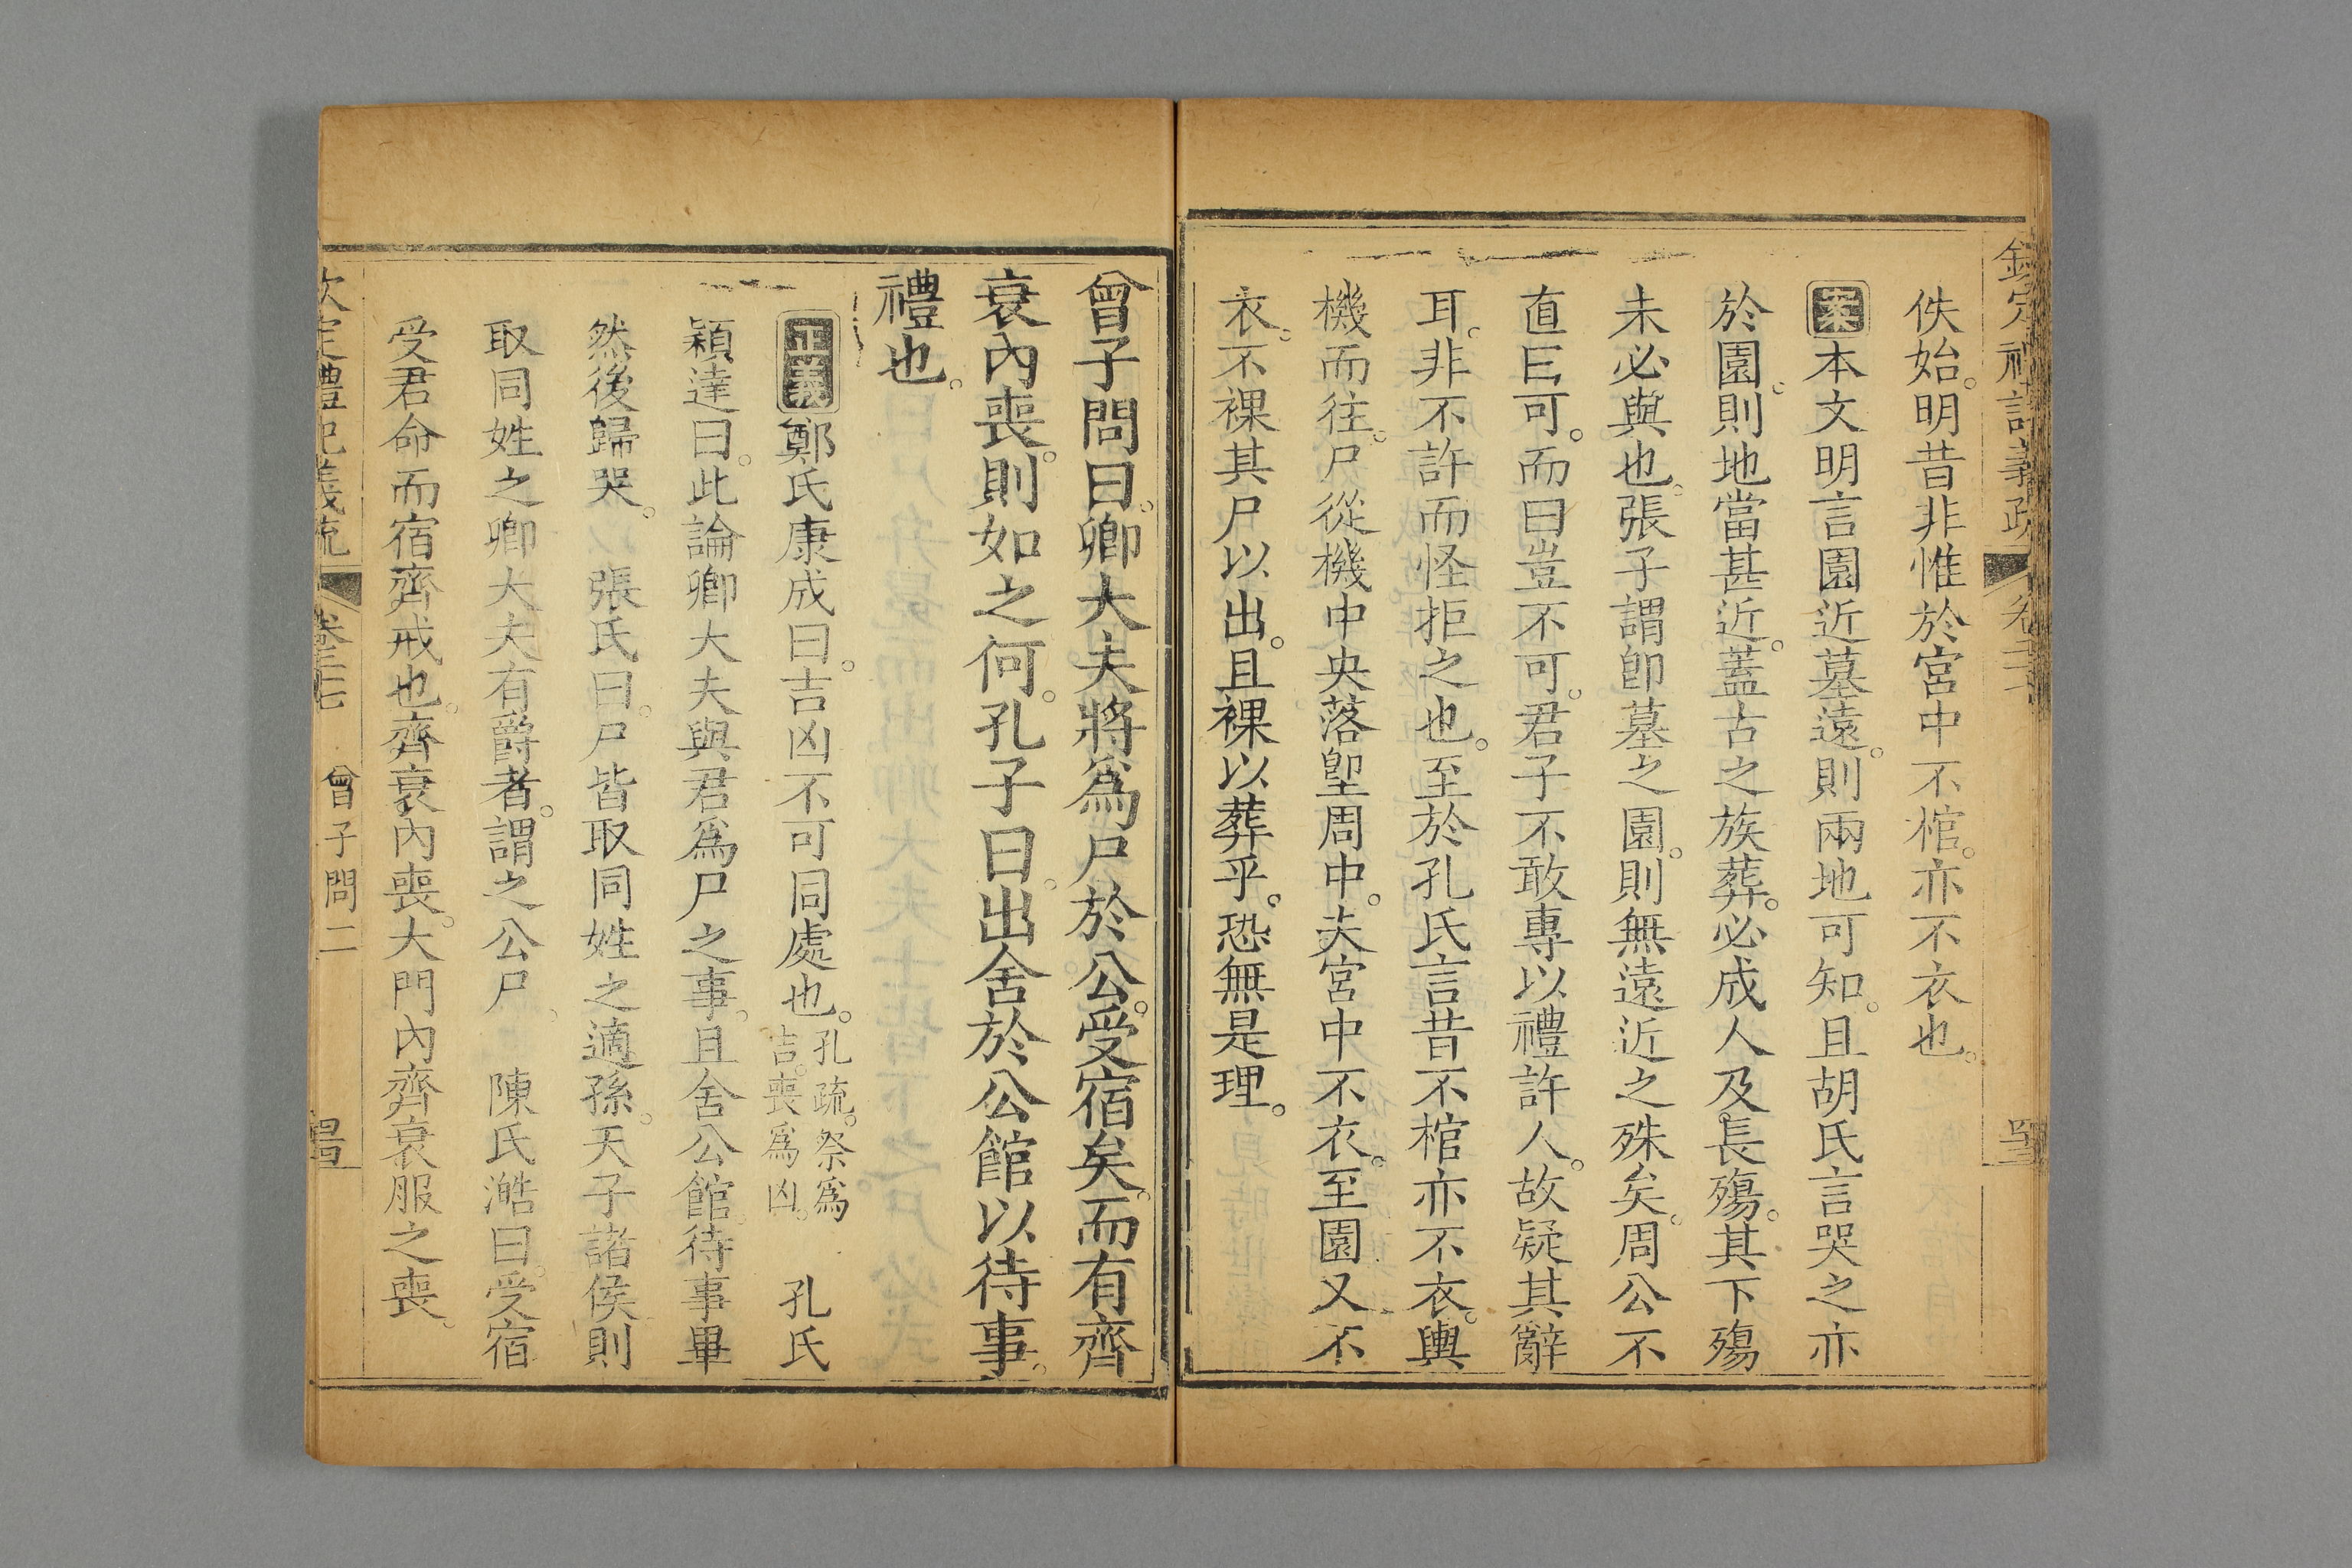 欽定禮記義疏 卷二十七
佚始。明昔非惟於宮中不棺。亦不衣也。
案本文明言園近墓遠。則兩地可知。且胡氏言哭之亦
於園。則地當甚近。蓋古之族葬。必成人及長殤。其下殤
未必與也。張子謂卽墓之園。則無遠近之殊矣。周公不
直曰可。而曰豈不可。君子不敢專以禮許人。故疑其辭
耳。非不許而怪拒之也。至於孔氏言昔不棺亦不衣。輿
機而往。尸從機中央落塱周中。夫宮中不衣。至園又不
衣。不裸其尸以出。且裸以葬乎。恐無是理。
曾子問曰。卿大夫將爲尸於公。受宿矣。而有齊
衰內喪。則如之何。孔子曰。出舍於公館以待事。
禮也。
正義鄭氏康成曰。吉凶不可同處也。孔疏。祭爲吉。喪爲凶。 孔氏
穎達曰。此論卿大夫與君爲尸之事。且舍公館。待事畢
然後歸哭。 張氏曰。尸皆取同姓之適孫。天子諸侯則
取同姓之卿大夫有爵者。謂之公尸。 陳氏澔曰。受宿
受君命而宿齊戒也。齊衰內喪。大門內齊衰服之喪。
欽定禮記義疏 卷二十七 曾子問二